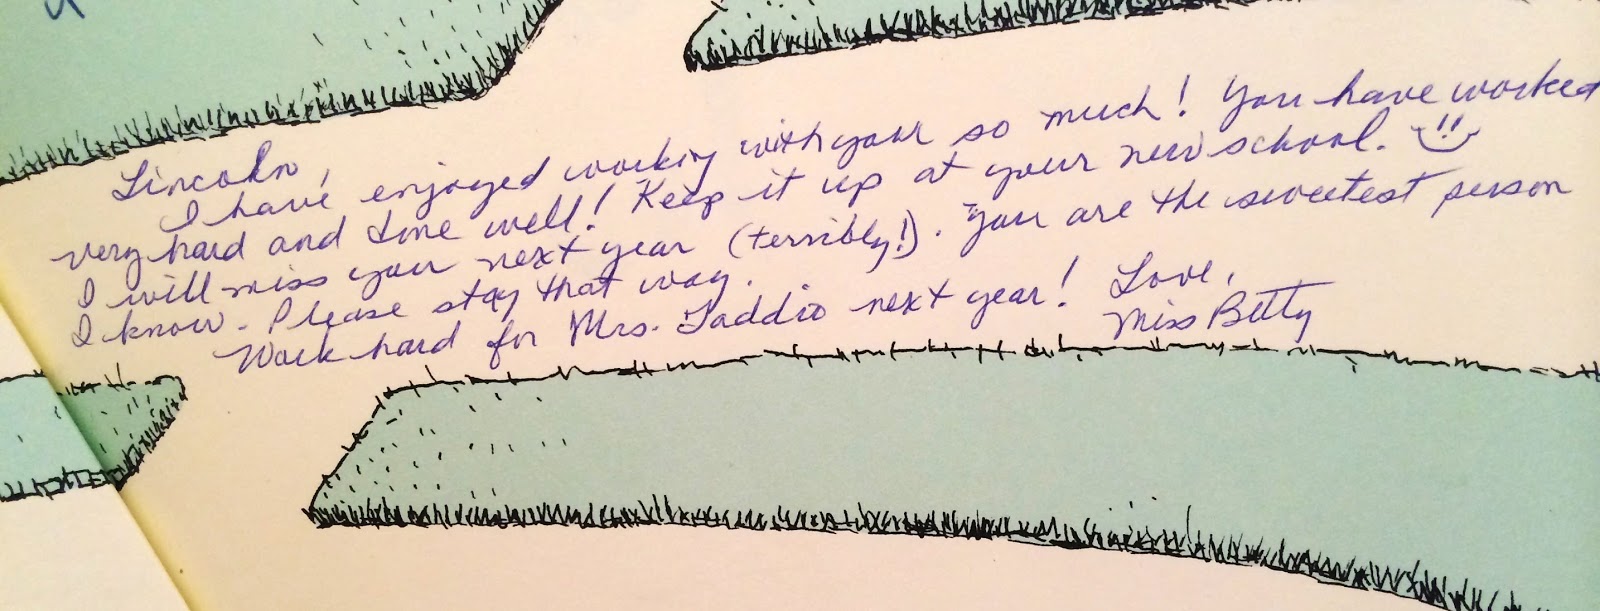 Lincoln,
I have enjoyed working with you so much! You have worked
very hard and done well! Keep it up at your new school.
I will miss you next year (terribly!). You are the sweetest person
I know. Please stay that way.
Work hard for Mrs. Taddio next year! Love,
Miss Betty